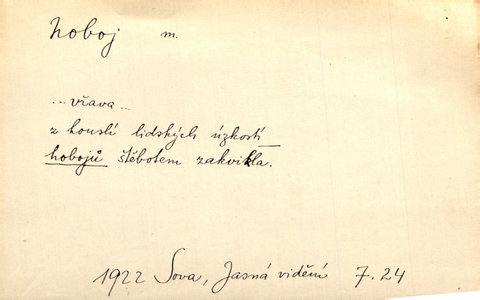 hoboj m.
... vřava ...
z houslí lidských úzkostí
hobojů štěbotem zakvikla.
1922 Sova, Jasná vidění 7.24